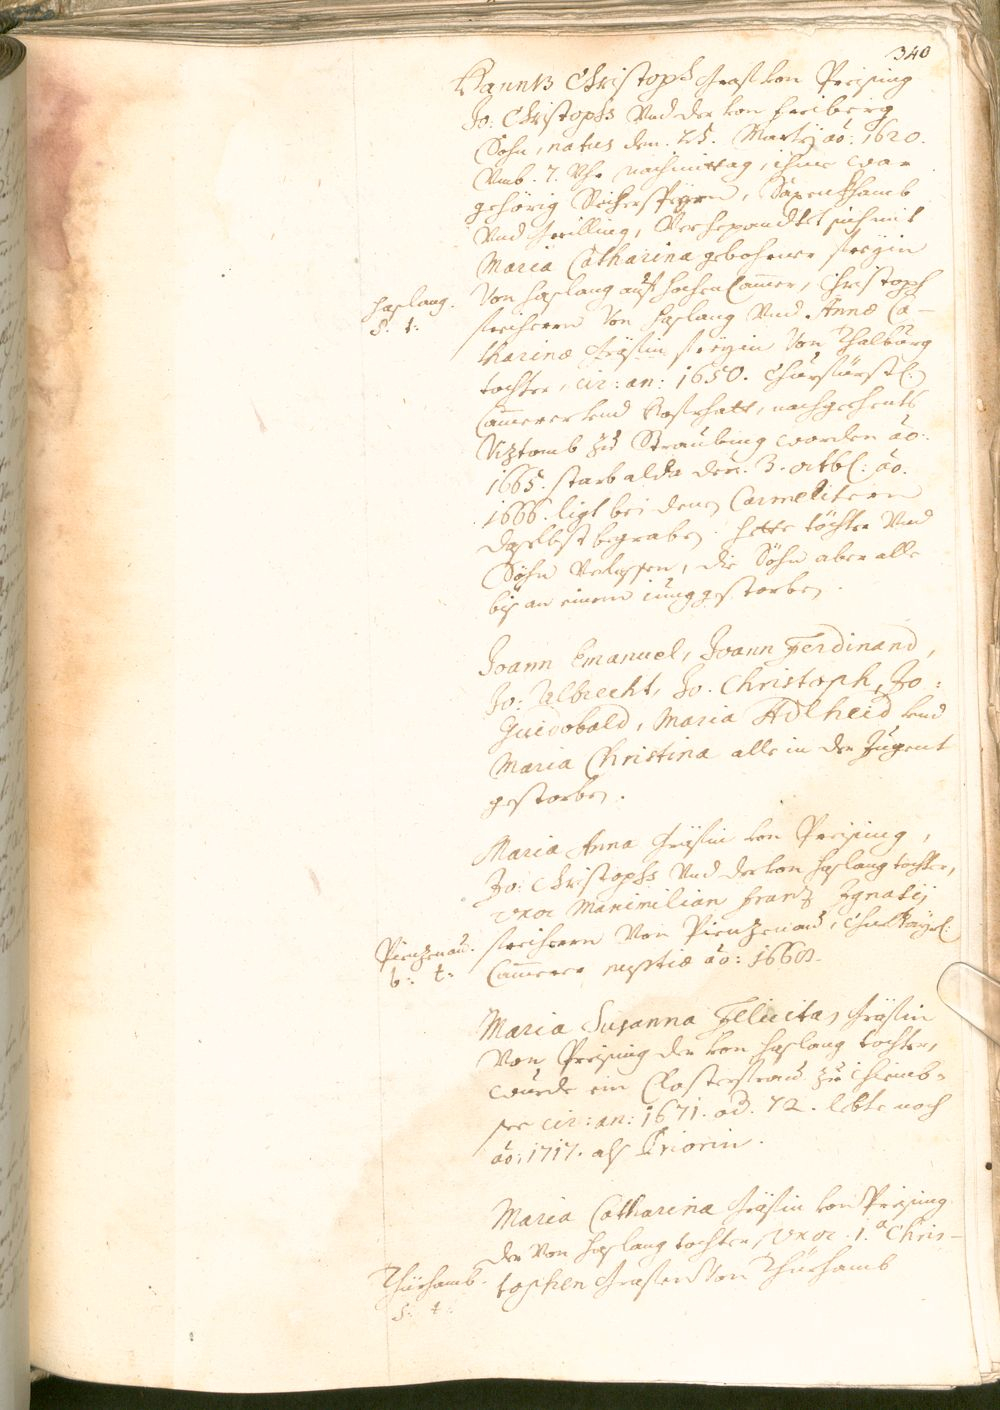 340
Hannß Christoph Graf von Preising
Jo: Christophs Und der von Freiberg
Sohn, natus den 25. Martij ao: 1620.
Umb 7. Uhr nachmittag, ihme war
gehörig
Und Grilling, Verheyrathet sich mit
Maria Catharina gebohrner Freyin
Haslang. Von Haslang auf Hochen Camer, Christoph
S: t: Freiherrn Von Haslang Und Annæ Ca-
tharinæ Gräfin Freyin Von Thalburg
tochter, cir: an: 1650. Churfürstl:
Camerer Und Hofrhatt, nachgehents
Viztomb zu Straubing worden ao:
1665. starb alda den 3. octbr: ao.
1666. ligt bei denen Carmelitern
daselbst begraben. hette töchter Und
Söhn Verlassen, die Söhn aber alle
bis an einem iung gestorben.
Joann Emanuel, Joann Ferdinand,
Jo: Albrecht, Jo. Christoph, Jo:
Guidobald, Maria Adlheid Und
Maria Christina alle in der Jugent
gestorben.
Maria Anna Gräfin von Preising,
Jo: Christophs Und der von Haslang tochter,
uxor Maximilian Frantz Ignatij
Pienzenau. Freiherrn Von Pienzenau, Chur Bayrl:
b: t: Camerer nuptiæ ao: 1668.
Maria Susanna Felicitas Gräfin
Von Preising der von Haslang tochter,
wurde ein Closterfrau zu Chiemb-
see cir: an: 1671. od. 72. lebte noch
ao: 1717. als Priorin.
Maria Catharina Gräfin von Preising
der Von Haslang tochter, uxor 1.a Chris-
Thürhamb. tophen Grafen Von Thürhamb
S: t: